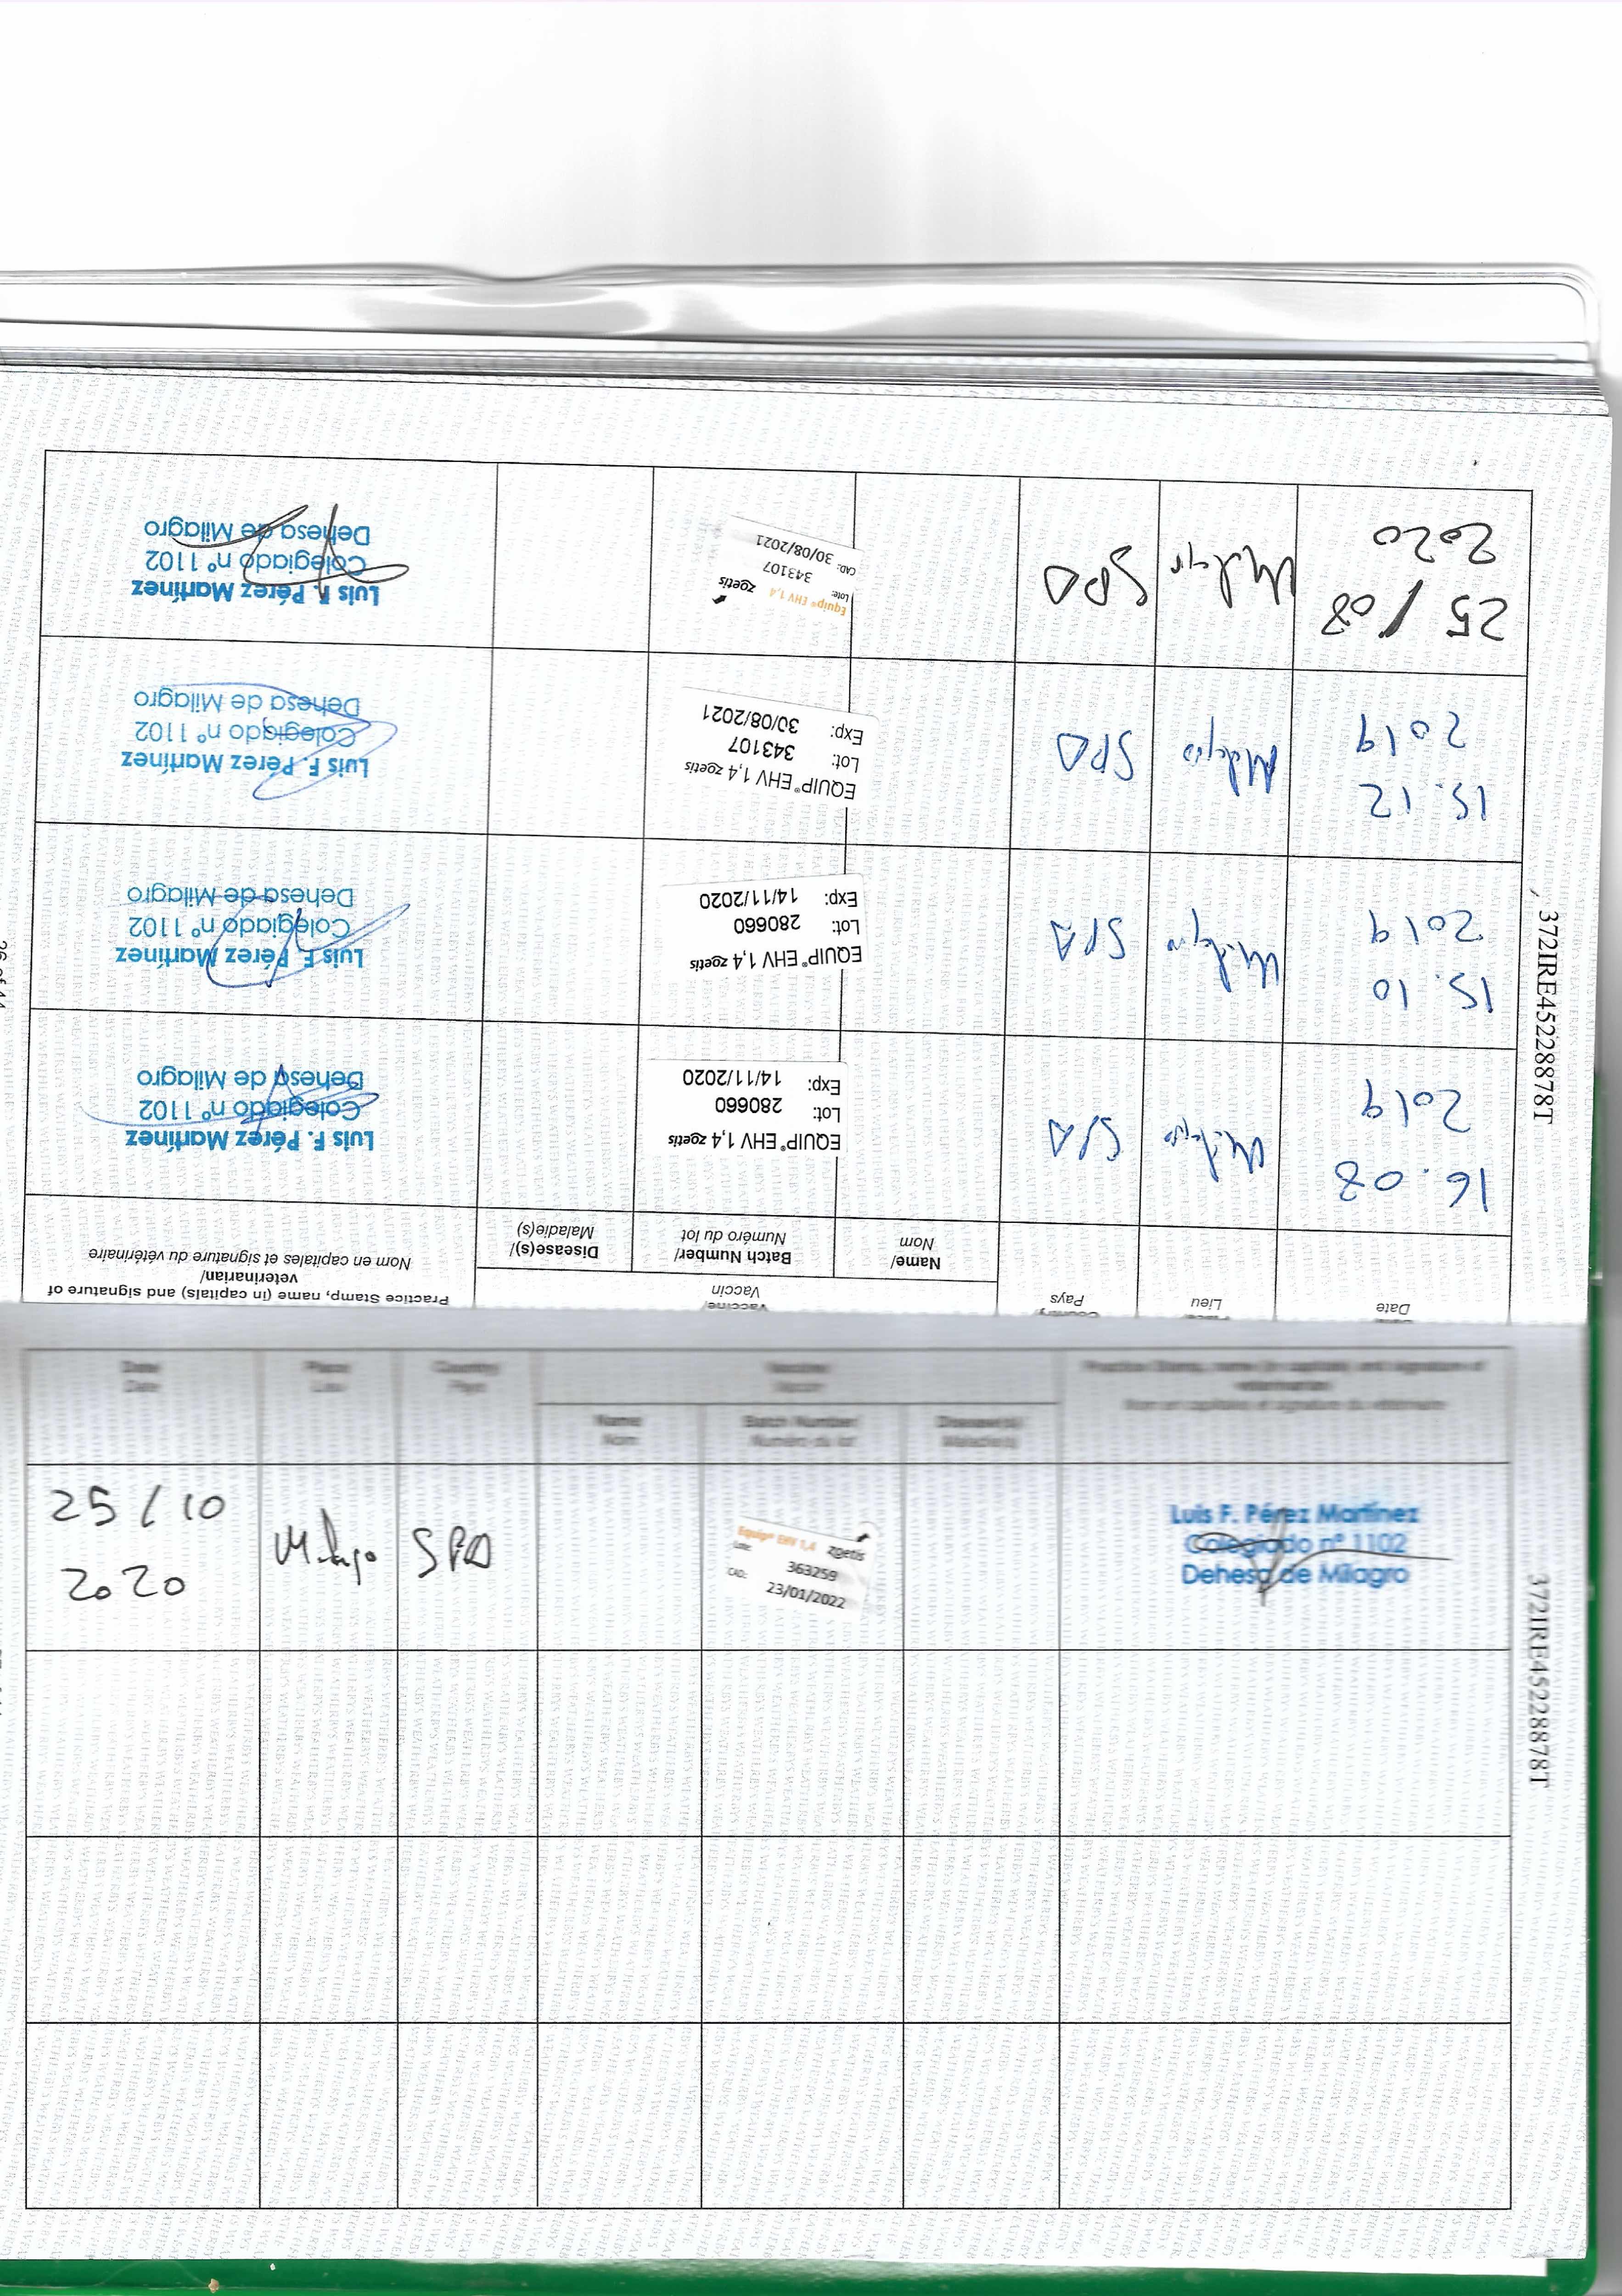 Date
Lieu
Pays
Vaccine/
Vaccin
Practice Stamp, name (in capitals) and signature of
veterinarian/
Nom en capitales et signature du vétérinaire
Name/
Nom
Batch Number/
Numéro du lot
Disease(s)/
Maladie(s)
16.08
2019
Milagro
SPA
EQUIP® EHV 1,4 zoetis
Lot: 280660
Exp: 14/11/2020
Luis F. Pérez Martínez
Colegiado nº 1102
Dehesa de Milagro
15.10
2019
Milagro
SPA
EQUIP® EHV 1,4 zoetis
Lot: 280660
Exp: 14/11/2020
Luis F. Pérez Martínez
Colegiado nº 1102
Dehesa de Milagro
15.12
2019
Milagro
SPA
EQUIP® EHV 1,4 zoetis
Lot: 343107
Exp: 30/08/2021
Luis F. Pérez Martínez
Colegiado nº 1102
Dehesa de Milagro
25/08
2020
Milagro
SPA
Equip® EHV 1,4 zoetis
Lote: 343107
CAD: 30/08/2021
Luis F. Pérez Martínez
Colegiado nº 1102
Dehesa de Milagro
372IRE45228878T
Date
Date
Place
Lieu
Country
Pays
Vaccine
Vaccin
Practice Stamp, name (in capitals) and signature of
veterinarian
Nom en capitales et signature du vétérinaire
Name
Nom
Batch Number
Numéro du lot
Disease(s)
Maladie(s)
25/10
2020
Milagro
SPA
Equip® EHV 1,4 zoetis
Lote: 363259
CAD: 23/01/2022
Luis F. Pérez Martínez
Colegiado nº 1102
Dehesa de Milagro
372IRE45228878T